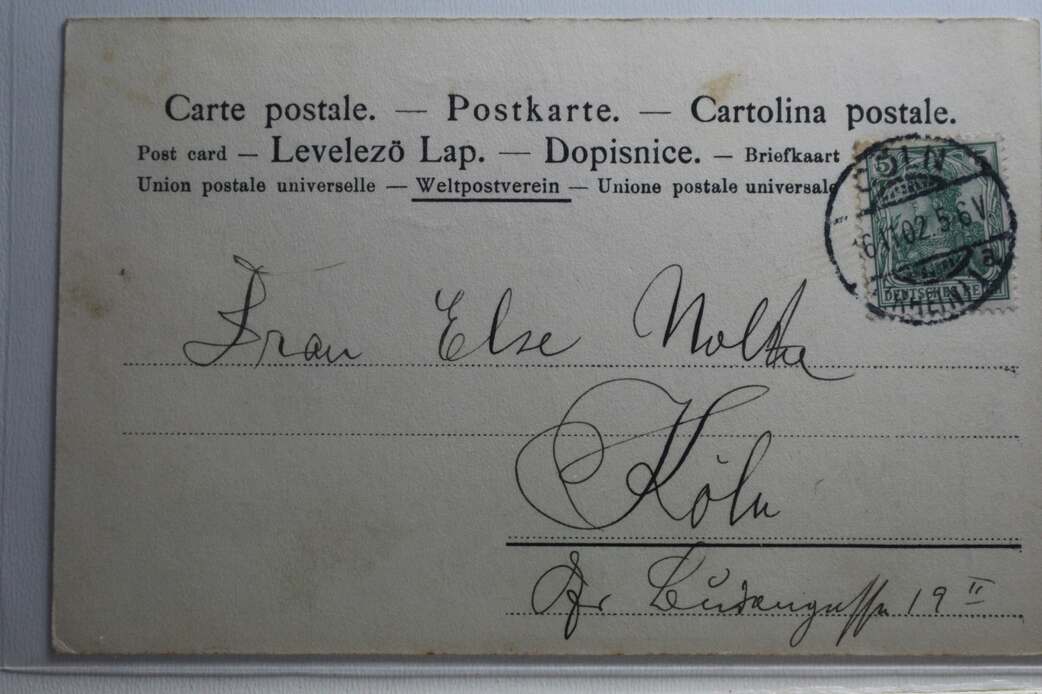 Carte postale. — Postkarte. — Cartolina postale.
Post card — Levelezö Lap. — Dopisnice. — Briefkaart
Union postale universelle — Weltpostverein — Unione postale universale
5
CÖLN
16.11.02. 5-6 V.
a
RHEIN
DEUTSCHES REICH
Frau Else Nolthe
Köln
19 II